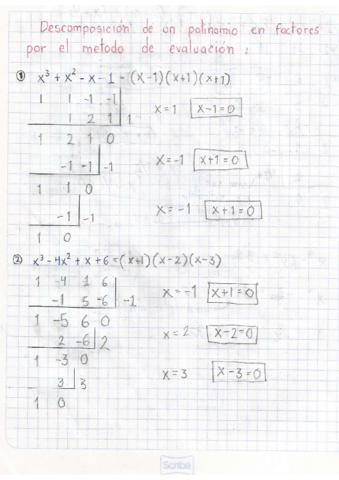 Descomposición de un polinomio en factores
por el metodo de evaluación :
① x³ + x² - x - 1 = (x-1)(x+1)(x+1)
1 1 -1 -1
1 2 1 | 1 x = 1 x-1=0
1 2 1 0
-1 -1 | -1 x=-1 x+1=0
1 1 0
-1 | -1 x=-1 x+1=0
1 0
② x³ - 4x² + x + 6 = (x+1)(x-2)(x-3)
1 -4 1 6
-1 5 -6 | -1 x=-1 x+1=0
1 -5 6 0
2 -6 | 2 x=2 x-2=0
1 -3 0
3 | 3 x=3 x-3=0
1 0
Scribe